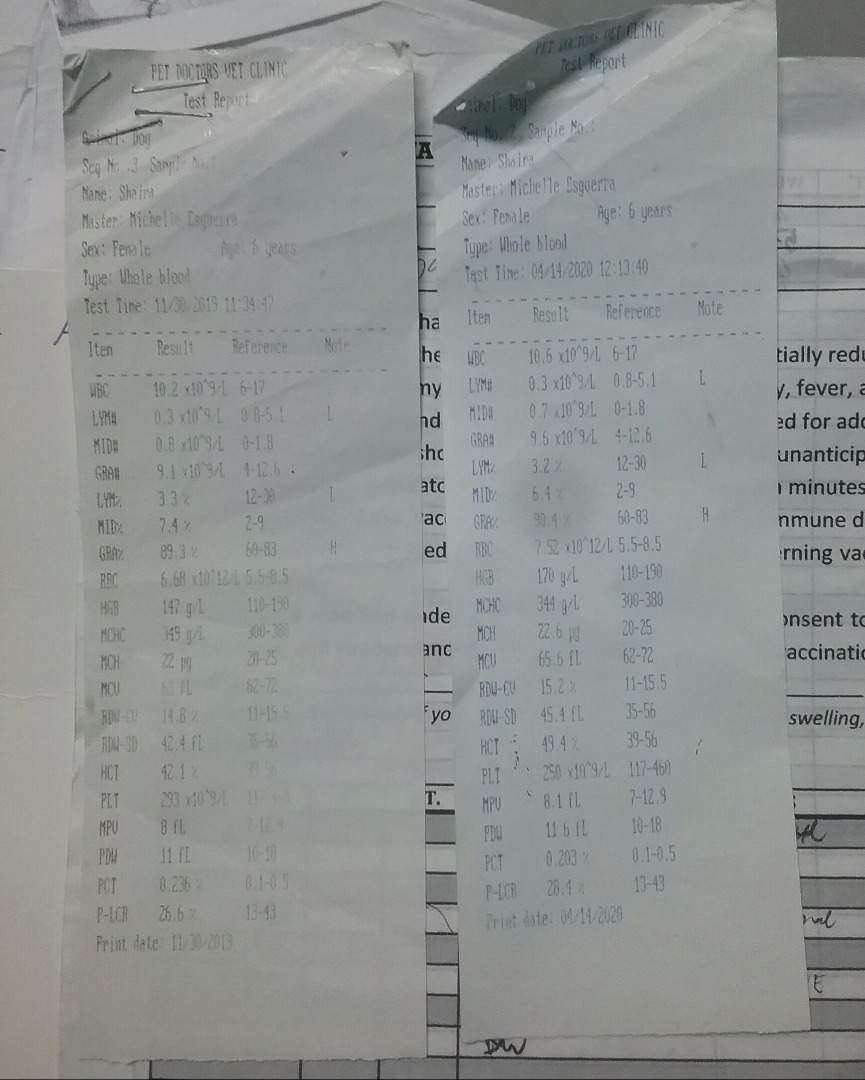 PET DOCTORS VET CLINIC
Test Report
Animal: Dog
Seq No.:3 Sample No.:
Name: Shaira
Master: Michelle Esguerra
Sex: Female Age: 6 years
Type: Whole blood
Test Time: 11/30/2019 11:34:42
Item Result Reference Note
WBC 10.2 x10^9/L 6-17
LYM# 0.3 x10^9/L 0.8-5.1 L
MID# 0.8 x10^9/L 0-1.8
GRA# 9.1 x10^9/L 4-12.6
LYM% 3.3 % 12-30 L
MID% 7.4 % 2-9
GRA% 89.3 % 60-83 H
RBC 6.68 x10^12/L 5.5-8.5
HGB 147 g/L 110-190
MCHC 349 g/L 300-380
MCH 22 pg 20-25
MCV 63 fL 62-72
RDW-CV 14.8 % 11-15.5
RDW-SD 42.4 fL 35-56
HCT 42.1 % 39-56
PLT 293 x10^9/L 117-460
MPV 8 fL 7-12.9
PDW 11 fL 10-18
PCT 0.236 % 0.1-0.5
P-LCR 26.6 % 13-43
Print date: 11/30/2019
PET DOCTORS VET CLINIC
Test Report
Animal: Dog
Seq No.:2 Sample No.:
Name: Shaira
Master: Michelle Esguerra
Sex: Female Age: 6 years
Type: Whole blood
Test Time: 04/14/2020 12:13:40
Item Result Reference Note
WBC 10.6 x10^9/L 6-17
LYM# 0.3 x10^9/L 0.8-5.1 L
MID# 0.7 x10^9/L 0-1.8
GRA# 9.6 x10^9/L 4-12.6
LYM% 3.2 % 12-30 L
MID% 6.4 % 2-9
GRA% 90.4 % 60-83 H
RBC 7.52 x10^12/L 5.5-8.5
HGB 170 g/L 110-190
MCHC 344 g/L 300-380
MCH 22.6 pg 20-25
MCV 65.6 fL 62-72
RDW-CV 15.2 % 11-15.5
RDW-SD 45.4 fL 35-56
HCT 49.4 % 39-56
PLT 250 x10^9/L 117-460
MPV 8.1 fL 7-12.9
PDW 11.6 fL 10-18
PCT 0.203 % 0.1-0.5
P-LCR 28.4 % 13-43
Print date: 04/14/2020
tially redu
y, fever, a
ed for add
unanticip
minutes
mmune d
rning vac
onsent to
accinatio
swelling,